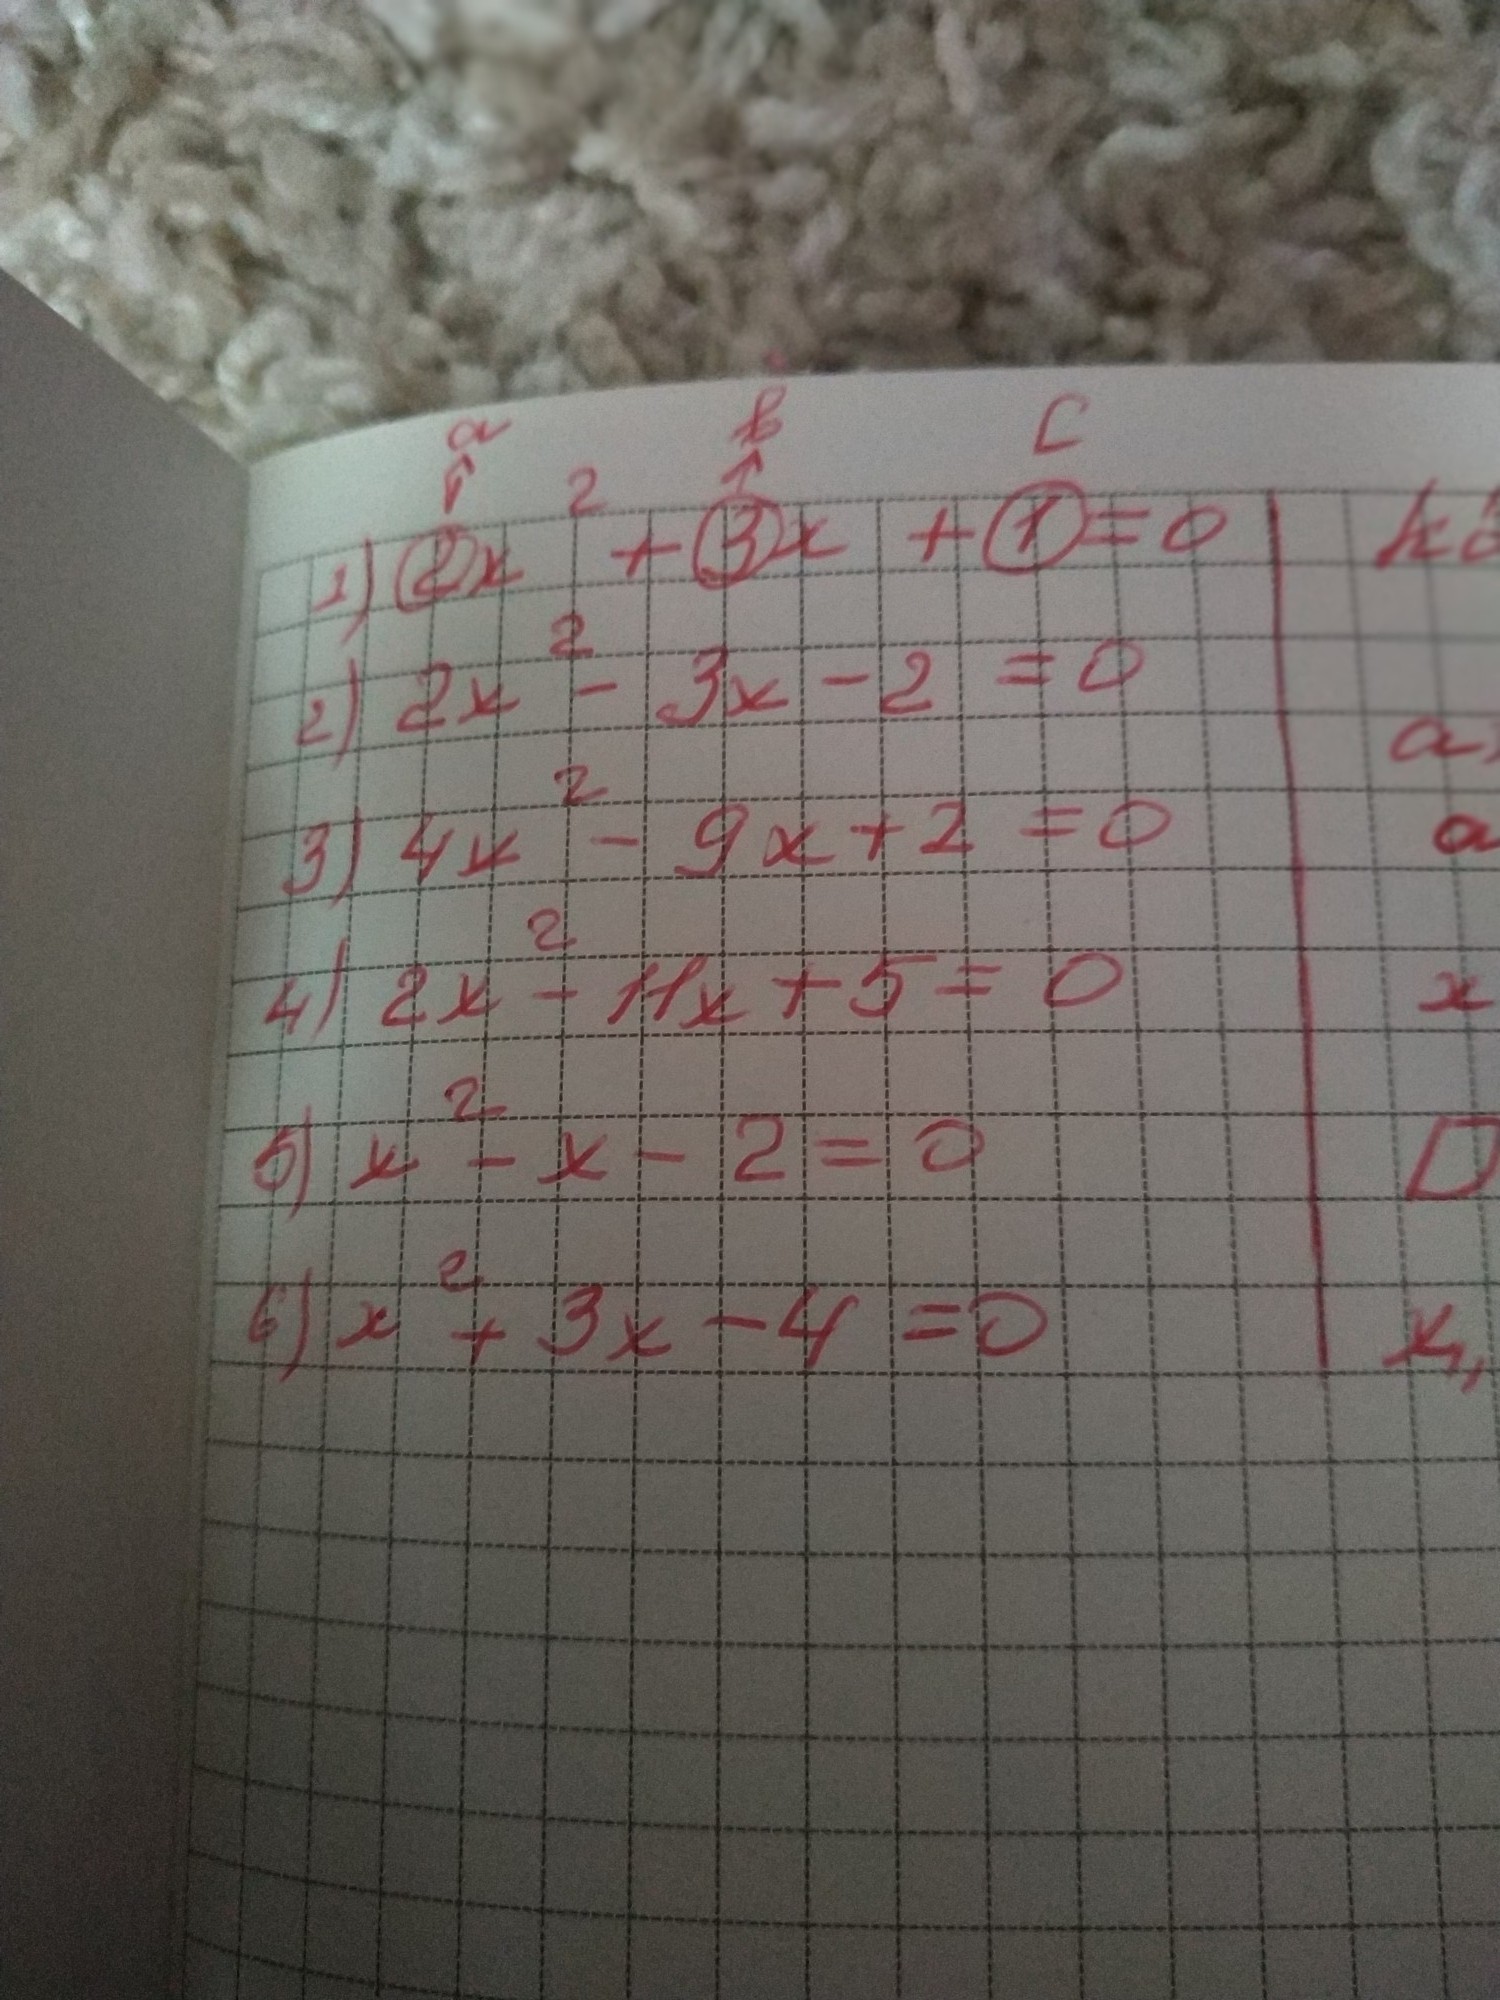 a b c
1) 2x² + 3x + 1 = 0
2) 2x² - 3x - 2 = 0
3) 4x² - 9x + 2 = 0
4) 2x² - 11x + 5 = 0
5) x² - x - 2 = 0
6) x² + 3x - 4 = 0
a
x
D
x₁,